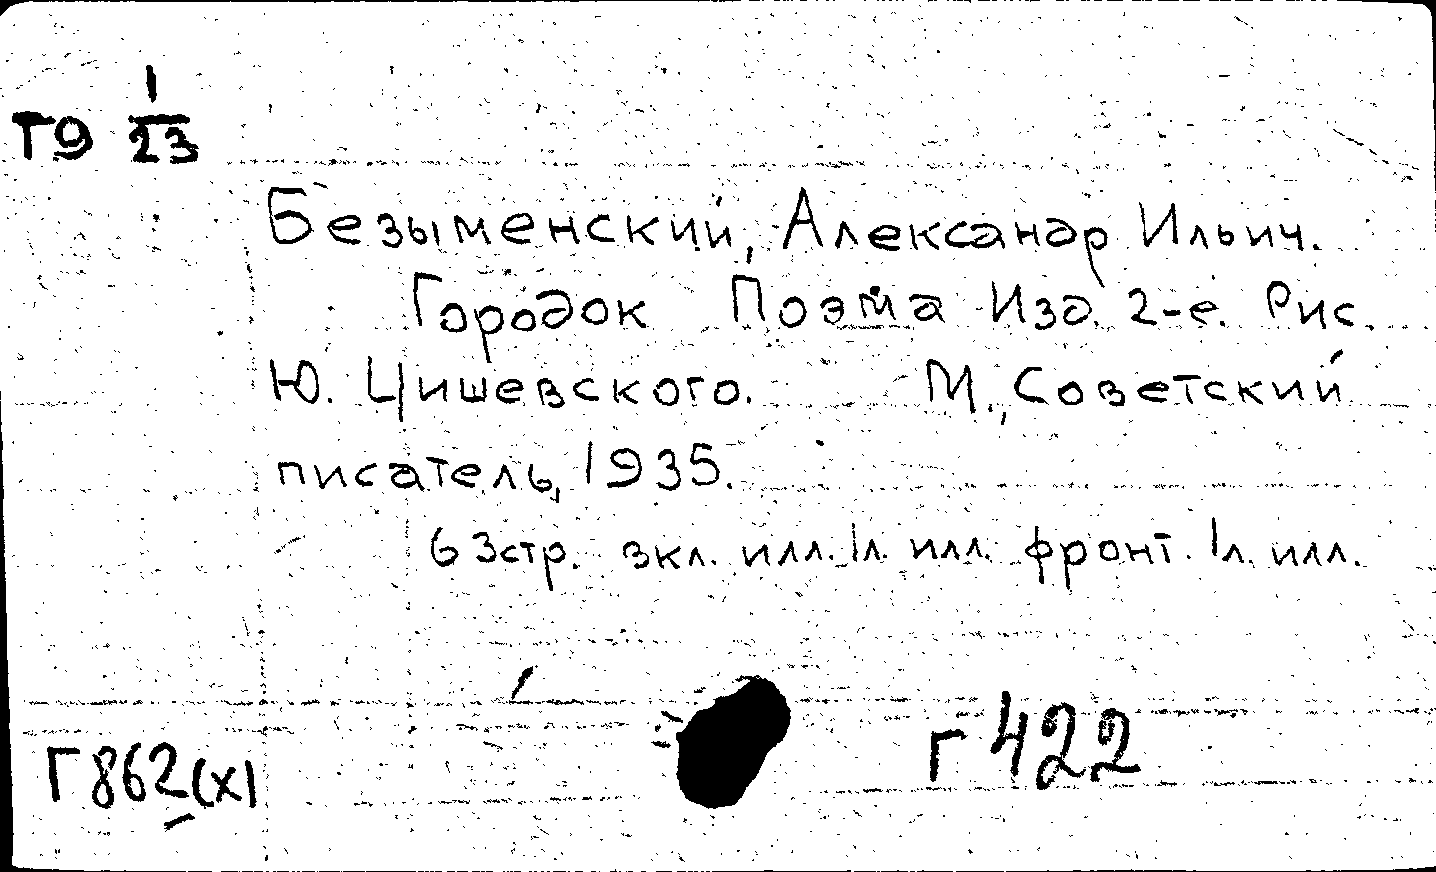 Г9 1/23
Безыменский, Александр Ильич.
Городок Поэма Изд. 2-е. Рис.
Ю. Цишевского. М., Советский
писатель, 1935.
63стр. вкл. илл. 1л. илл. фронт. 1л. илл.
Г862(х) Г422